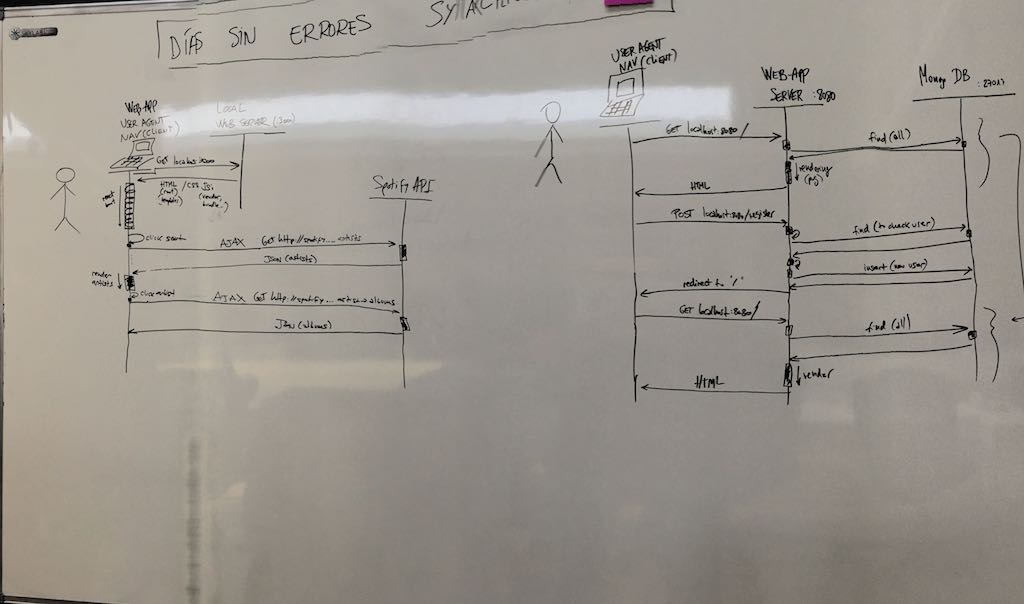 DÍAS SIN ERRORES
WEB-APP
USER AGENT
NAV (CLIENT)
LOCAL
WEB SERVER
GET
HTML / CSS
Spotify API
click
AJAX GET http://spotify....artists
JSON (artists)
render
artists
click
AJAX GET http://spotify...
JSON (albums)
USER AGENT
NAV (CLIENT)
WEB-APP
SERVER :8080
Mongo DB :27017
GET localhost:8080/
find (all)
rendering
HTML
POST localhost:8080/register
find (to check user)
insert (new user)
redirect to "/"
GET localhost:8080/
find (all)
render
HTML